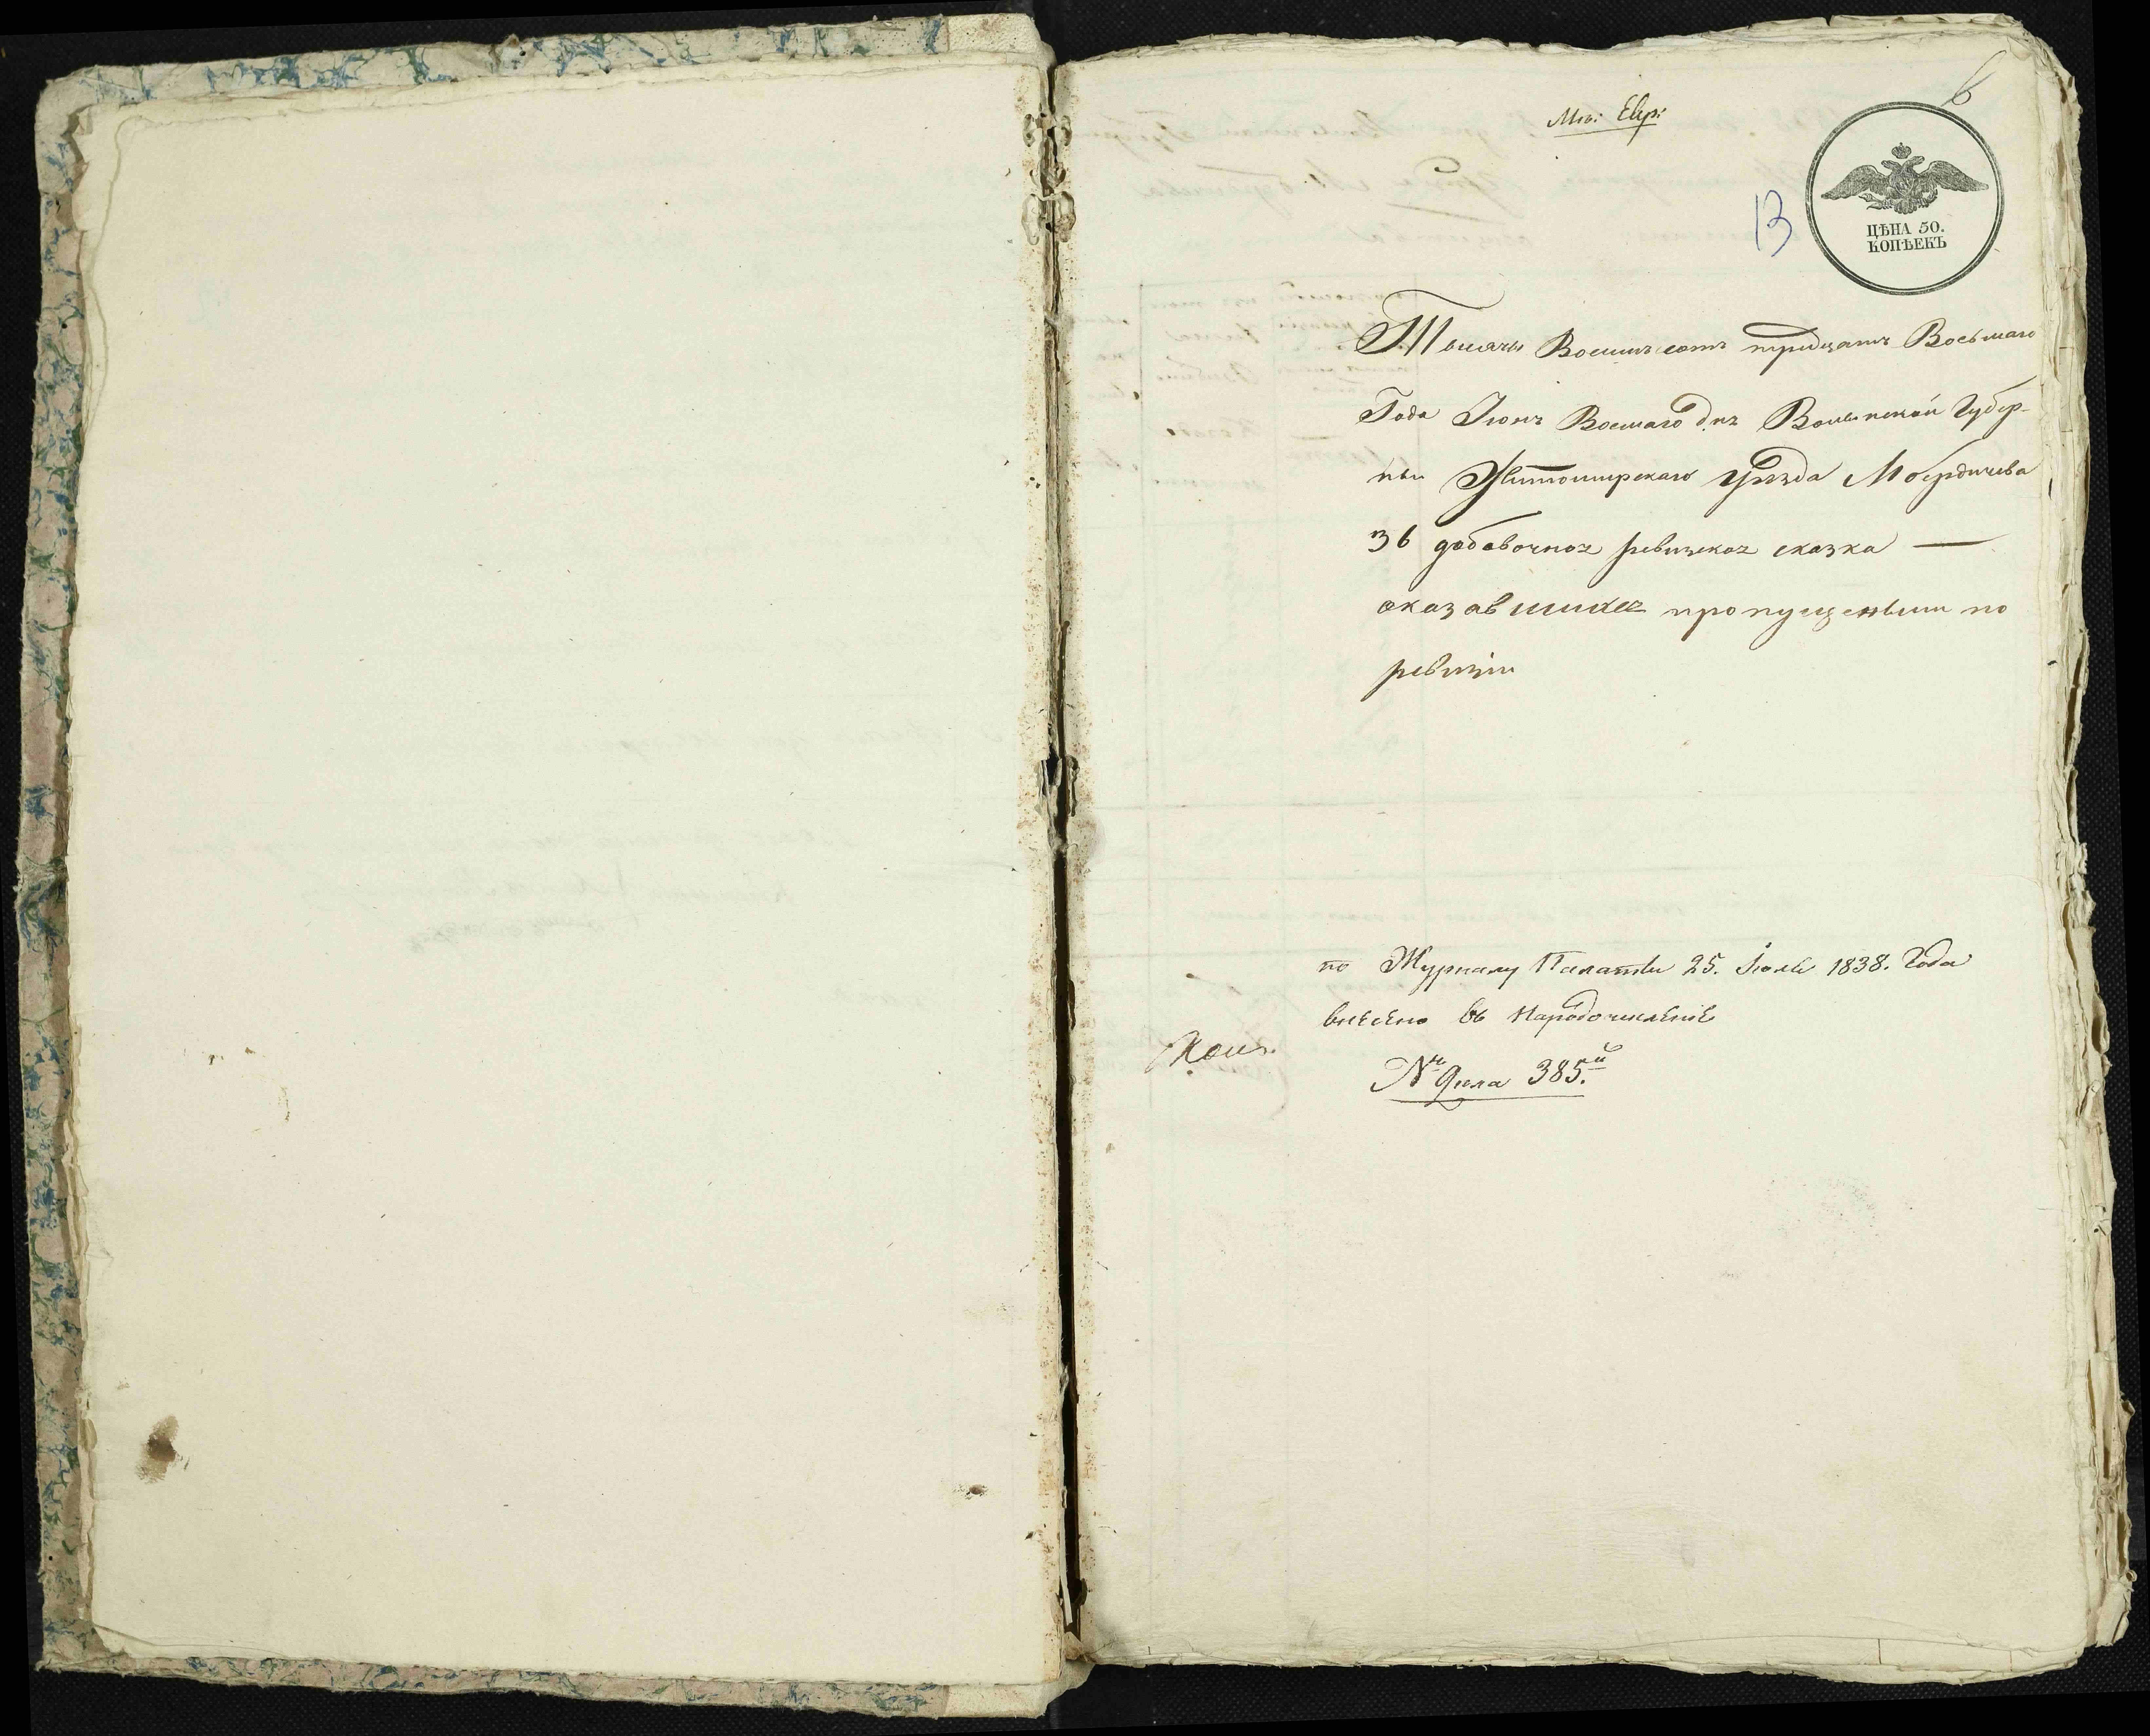 Мѣ: Евр:
6
13
ЦѢНА 50.
КОПѢЕКЪ
Тысяча Восимъ сотъ тридцать Восьмаго
Года Іюнъ Восмаго дня Волынской Губер-
ніи Житомирскаго уѣзда М бердичева
36 добавочноя ревизкоя сказка —
оказавшихся пропущеными по
ревизіи
по Журналу Палаты 25. Іюля 1838. Года
внесено въ Народочисленіе
№ Дѣла 385.й